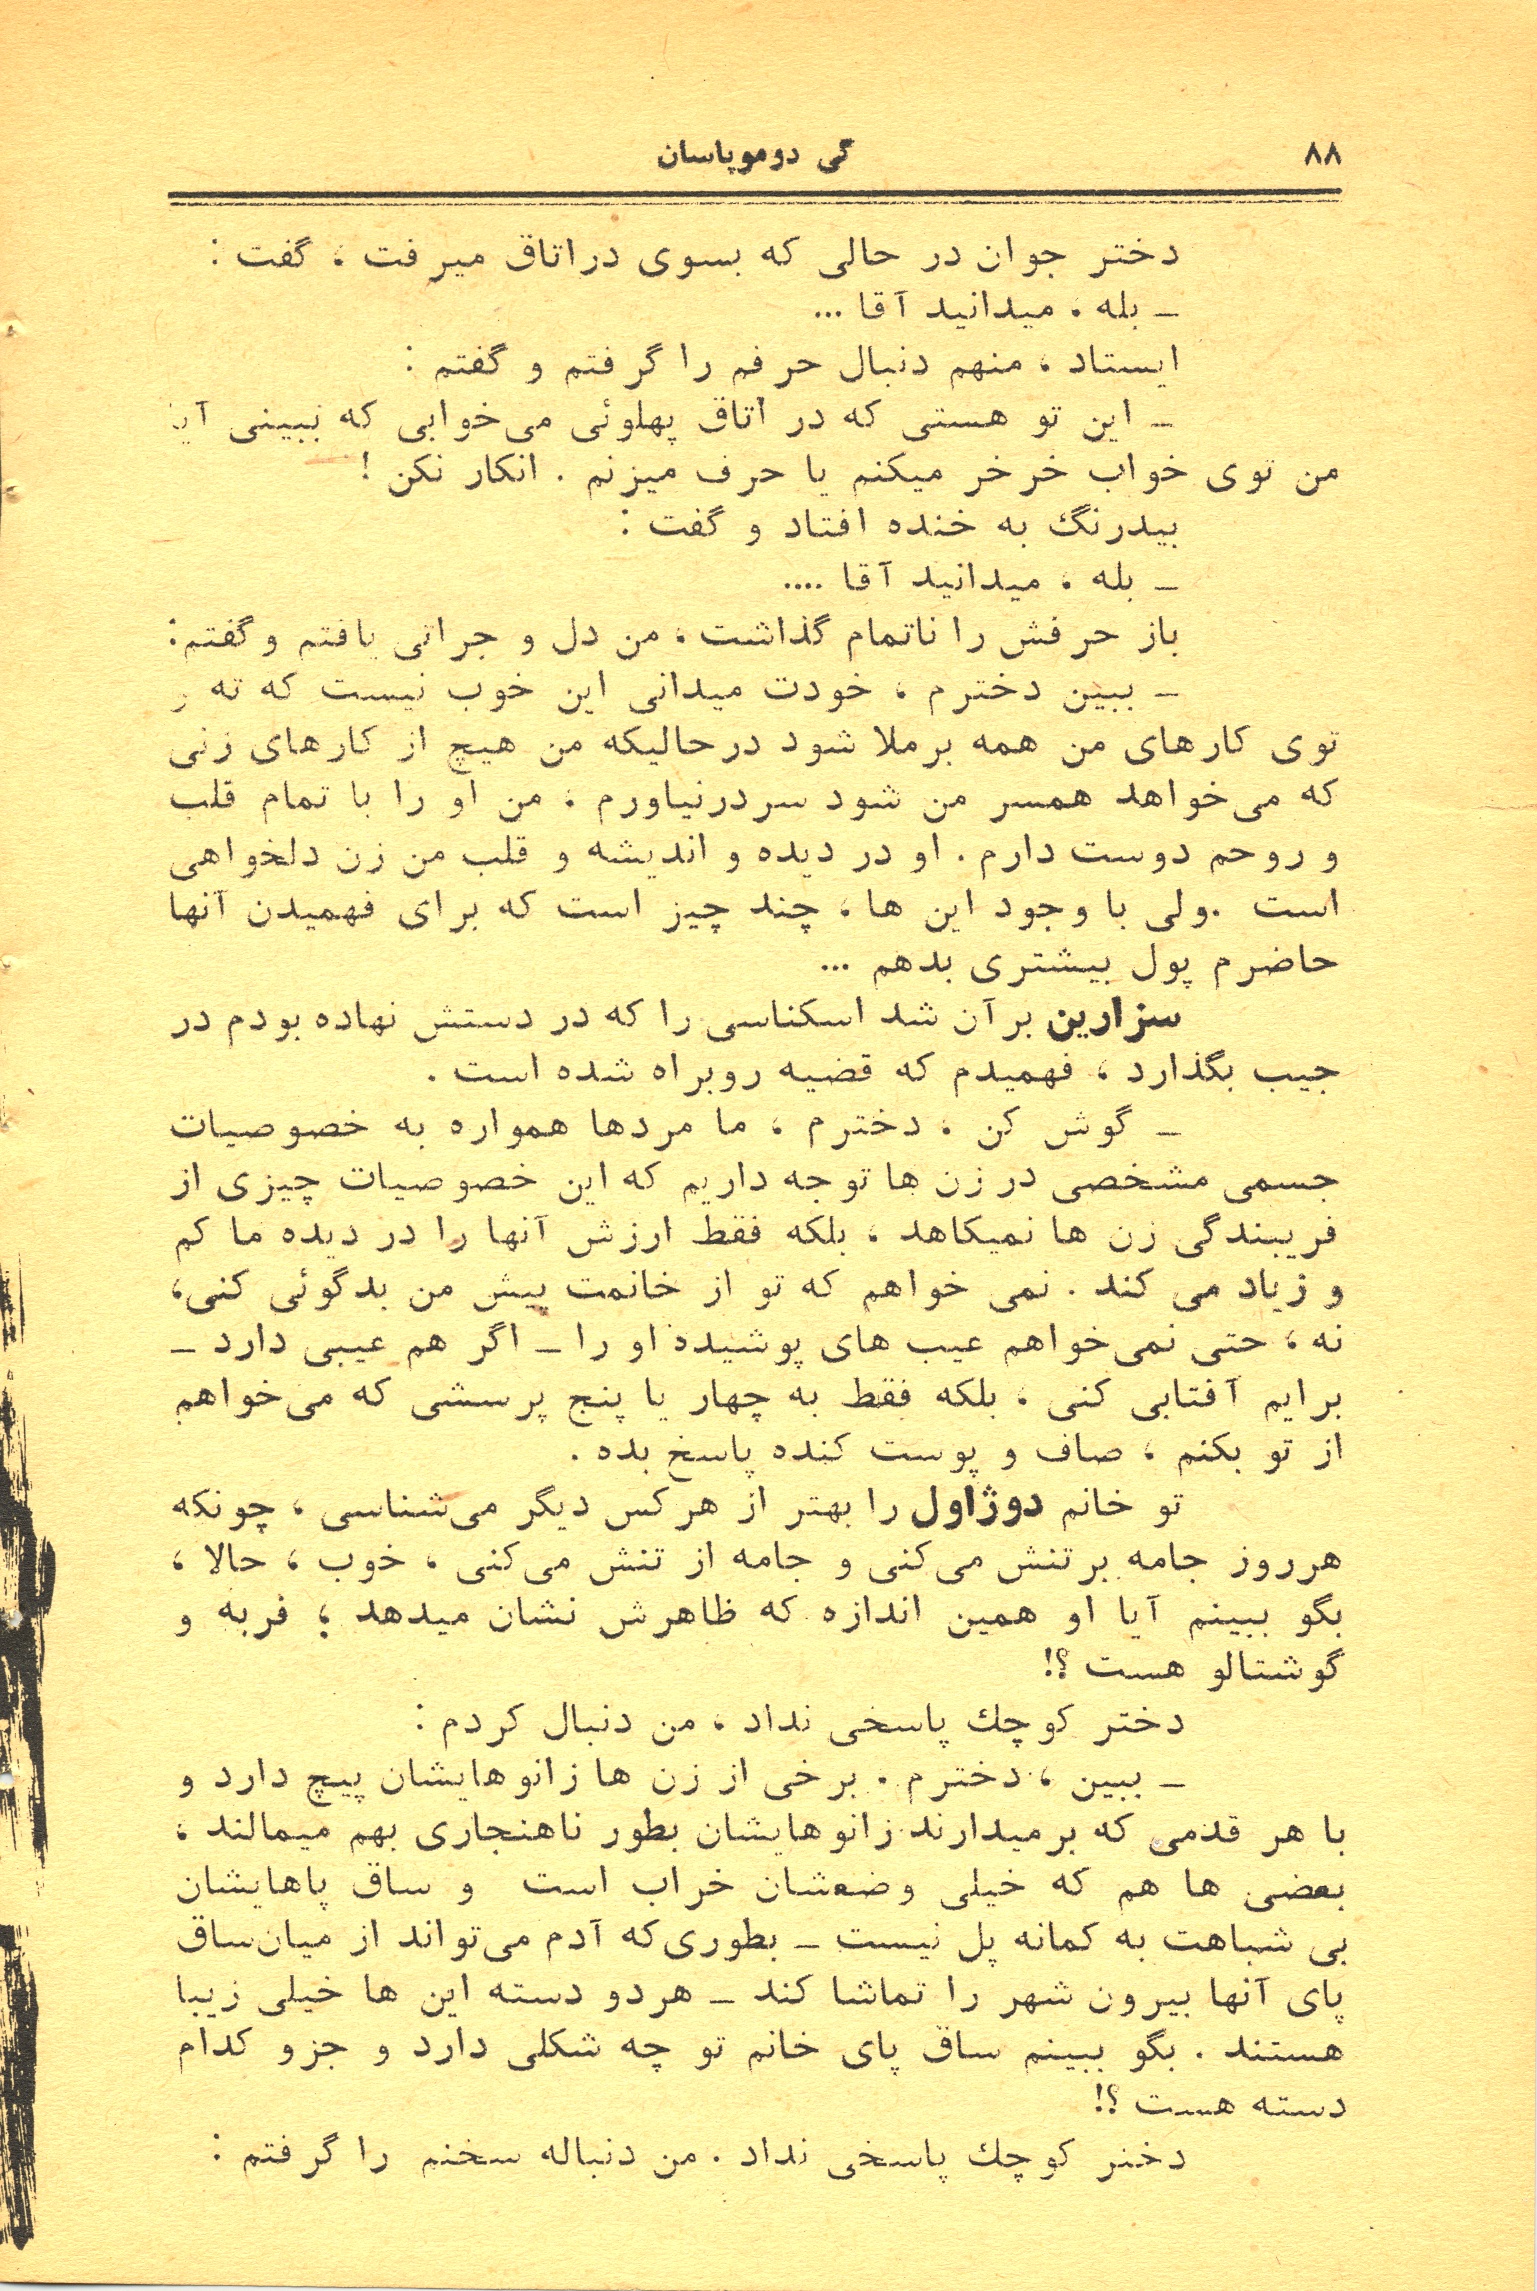 ۸۸
گی دوموپاسان
دختر جوان در حالی که بسوی دراتاق میرفت ، گفت :
ـ بله ، میدانید آقا ...
ایستاد ، منهم دنبال حرفم را گرفتم و گفتم :
ـ این تو هستی که در اتاق پهلوئی می‌خوابی که ببینی آیا
من توی خواب خرخر میکنم یا حرف میزنم . انکار نکن !
بیدرنگ به خنده افتاد و گفت :
ـ بله ، میدانید آقا ....
باز حرفش را ناتمام گذاشت ، من دل و جراتی یافتم وگفتم:
ـ ببین دخترم ، خودت میدانی این خوب نیست که ته و
توی کارهای من همه برملا شود درحالیکه من هیچ از کارهای زنی
که می‌خواهد همسر من شود سردرنیاورم ، من او را با تمام قلب
و روحم دوست دارم . او در دیده و اندیشه و قلب من زن دلخواهی
است .ولی با وجود این ها ، چند چیز است که برای فهمیدن آنها
حاضرم پول بیشتری بدهم ...
سزارین برآن شد اسکناسی را که در دستش نهاده بودم در
جیب بگذارد ، فهمیدم که قضیه روبراه شده است .
ـ گوش کن ، دخترم ، ما مردها همواره به خصوصیات
جسمی مشخصی در زن ها توجه داریم که این خصوصیات چیزی از
فریبندگی زن ها نمیکاهد ، بلکه فقط ارزش آنها را در دیده ما کم
و زیاد می کند . نمی خواهم که تو از خانمت پیش من بدگوئی کنی،
نه ، حتی نمی‌خواهم عیب های پوشیده او را ـ اگر هم عیبی دارد ـ
برایم آفتابی کنی ، بلکه فقط به چهار یا پنج پرسشی که می‌خواهم
از تو بکنم ، صاف و پوست کنده پاسخ بده .
تو خانم دوژاول را بهتر از هرکس دیگر می‌شناسی ، چونکه
هرروز جامه برتنش می‌کنی و جامه از تنش می‌کنی ، خوب ، حالا ،
بگو ببینم آیا او همین اندازه که ظاهرش نشان میدهد ؛ فربه و
گوشتالو هست ؟!
دختر کوچك پاسخی نداد ، من دنبال کردم :
ـ ببین ، دخترم . برخی از زن ها زانوهایشان پیچ دارد و
با هر قدمی که برمیدارند زانوهایشان بطور ناهنجاری بهم میمالند ،
بعضی ها هم که خیلی وضعشان خراب است و ساق پاهایشان
بی شباهت به کمانه پل نیست ـ بطوری‌که آدم می‌تواند از میان‌ساق
پای آنها بیرون شهر را تماشا کند ـ هردو دسته این ها خیلی زیبا
هستند . بگو ببینم ساق پای خانم تو چه شکلی دارد و جزو کدام
دسته هست ؟!
دختر کوچك پاسخی نداد . من دنباله سخنم را گرفتم :